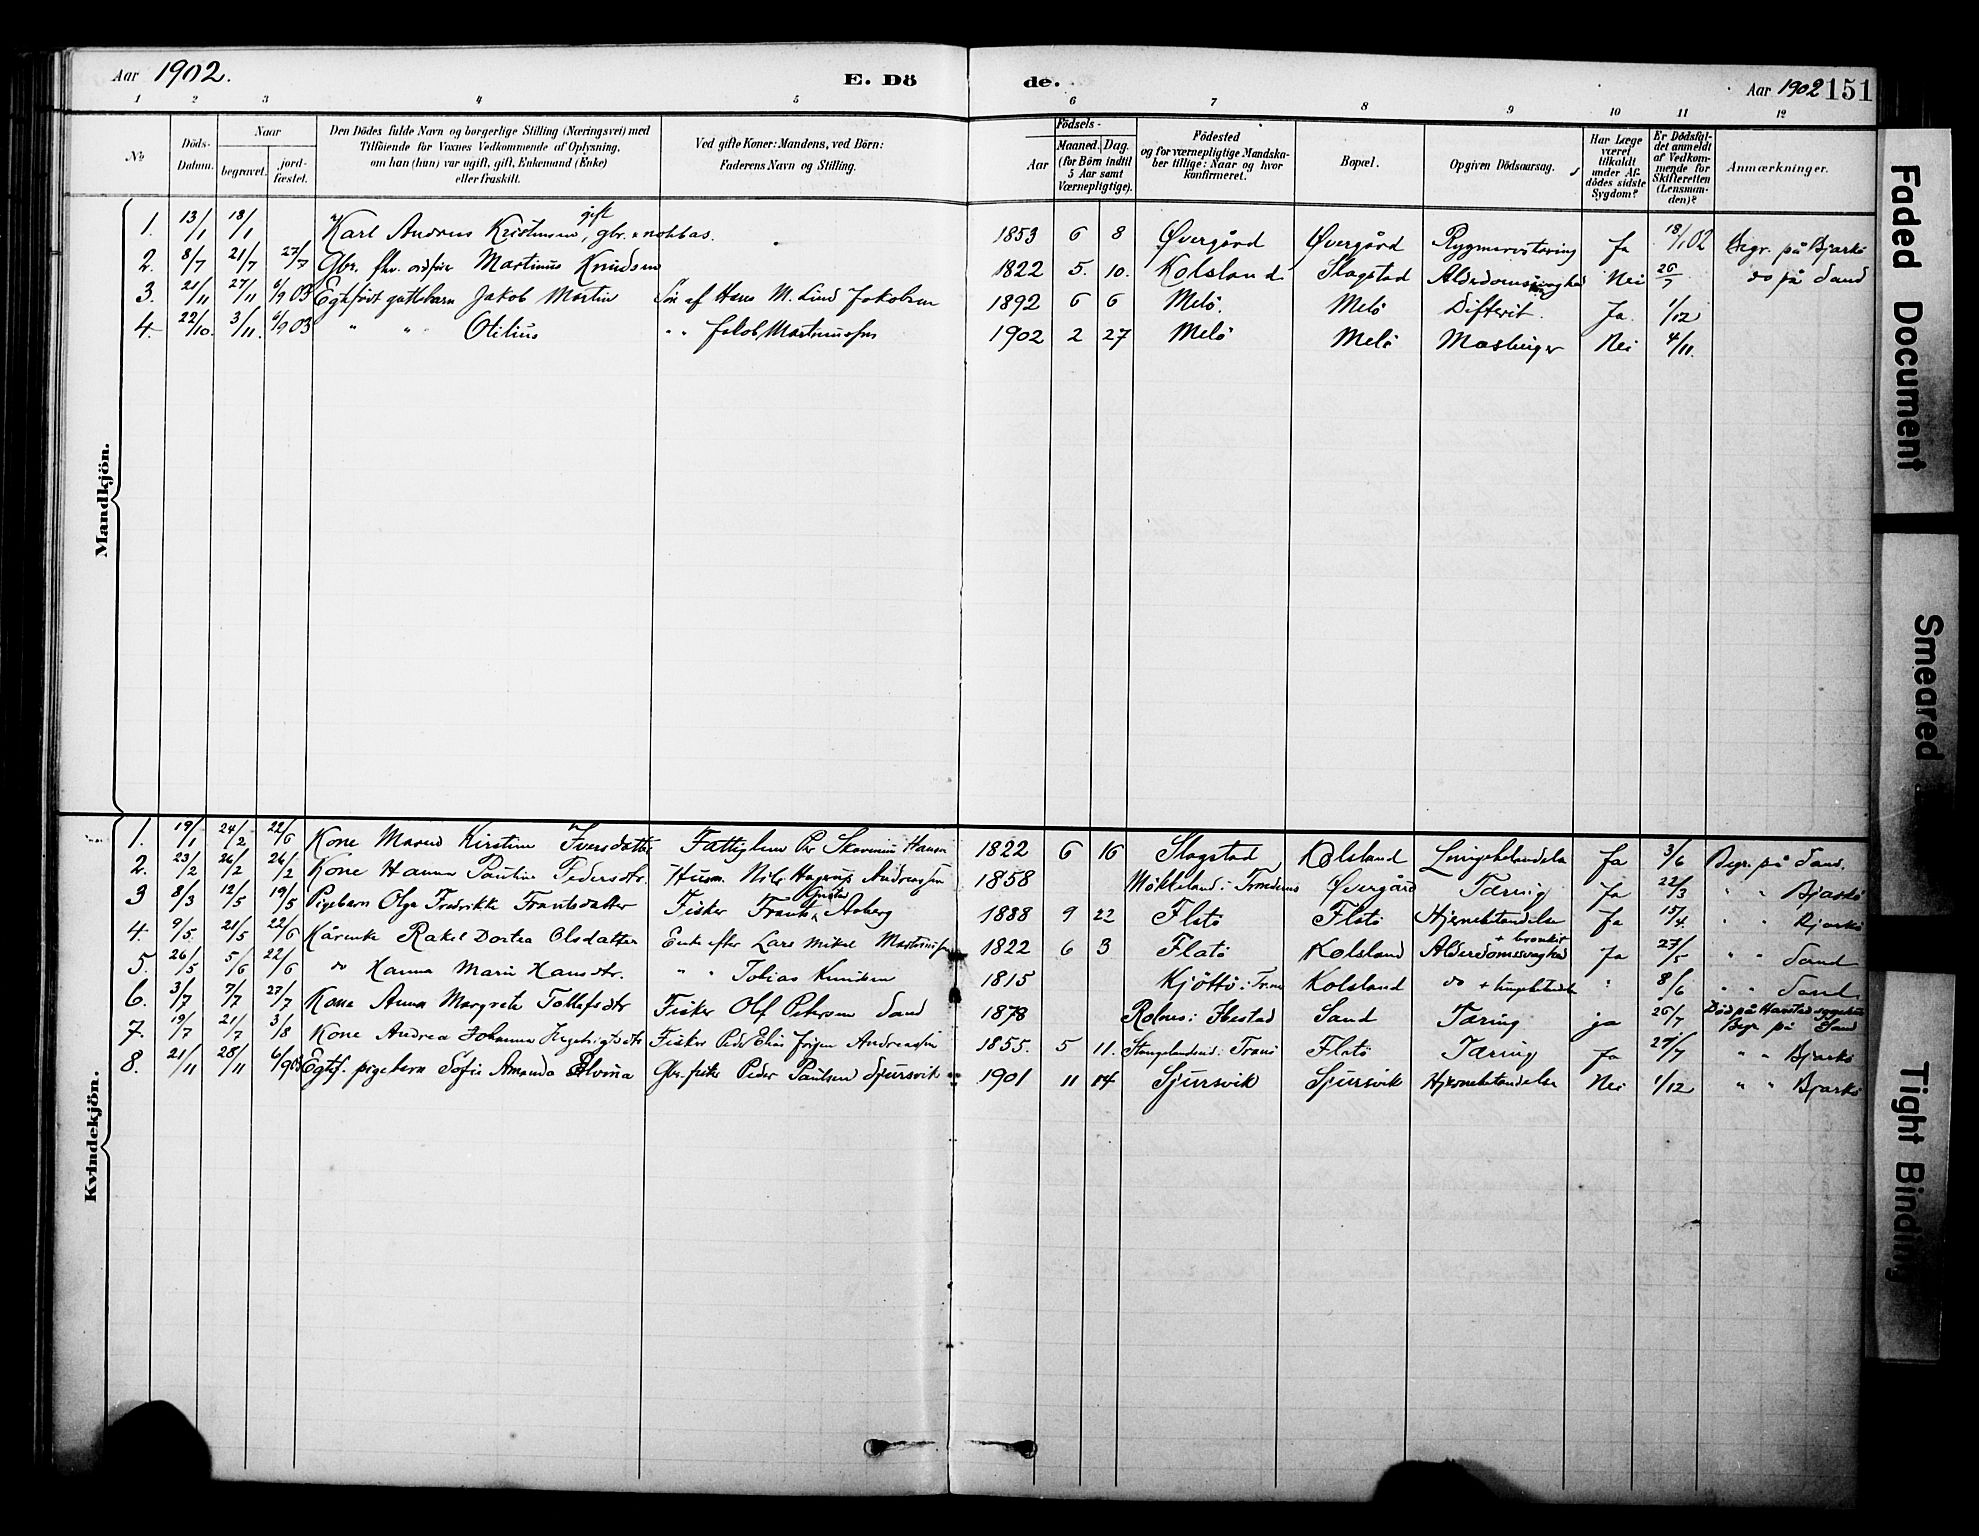 Aar 1902. E. Dö de. Aar 1902 151
1 2 3 4 5 6 7 8 9 10 11 12
No
Döds-Datum.
Naar
begravet.
jord-fæstet.
Den Dödes fulde Navn og borgerlige Stilling (Næringsvei) med
Tilföiende for Voxnes Vedkommende af Oplysning,
om han (hun) var ugift, gift, Enkemand (Enke)
eller fraskilt.
Ved gifte Koner: Mandens, ved Börn:
Faderens Navn og Stilling.
Födsels-
Aar
Maaned. Dag.
(for Börn indtil
5 Aar samt
Værnepligtige).
Födested
og for værnepligtige Mandska-
ber tillige: Naar og hvor
konfirmeret.
Bopæl.
Opgiven Dödsaarsag.
Har Læge
været
tilkaldt
under Af-
dödes sidste
Sygdom?
Er Dödsfal-
det anmeldt
af Vedkom-
mende for
Skifteretten
(Lensman-
den)?
Anmærkninger.
Mandkjön.
1. 13/1 18/1 Karl Andreas Kristensen, gift gbr. & notbas. 1853 6 8 Øvergård Øvergård Rygmarvstæring Ja 18/1 02 Begr. på Bjarkö
2. 8/7 21/7 27/7 Gbr. fhv. ordfører Martinus Knudsen 1822 5. 10. Kolsland Slagstad Alderdomssvaghed Nei 26/7 do på Sand
3. 21/11 27/11 6/9 03 Egtefödt guttebarn Jakob Martin Sön af Hans M. Lind Jakobsen 1892 6 6 Melö. Melö Difterit. Ja. 1/12
4. 22/10. 3/11. 6/9 03 " " Otilius " " Jakob Martinussen 1902 2 27 Melö Melö Mæslinger Nei 4/11.
Kvindekjön.
1. 19/1 24/2 22/6 Kone Maren Kirstine Iversdatter Fattiglem Per Skavenius Hansen 1822 6 16 Slagstad Kolsland Lungebetændelse Ja 3/6 Begr. på Sand.
2. 23/2 26/2 26/2 Kone Hanna Pauline Pedersdtr. Husm. Nils Hagerup Andreassen 1858 Mökkeland i Trondenes Øvergård Tæring Ja 22/3 " " Bjarkö
3 8/3 12/5 19/5 Pigebarn Olga Fredrikke Frantsdatter Fisker Frants Gustav Aaberg 1888 9 22 Flatö Flatö Hjernebetændelse Ja 15/4. " " Bjarkö
4. 9/5. 21/5 22/6 Kårenke Rakel Dortea Olsdatter Enke efter Lars Mikal Martinussen 1822 6 3 Flatö Kolsland Alderdomssvaghed + bronkit Ja 27/5 " " Sand
5. 26/5 5/6 22/6 do Hanna Marie Hansdtr. " " Tobias Knudsen 1815 Kjöttö i Tr.nes Kolsland do + lungebetændelse " 8/6 " " Sand
6. 3/7 7/7 27/7 Kone Anna Margrete Tollefsdtr Fisker Olaf Petersen Sand 1878 Rolnes i Ibestad Sand Tæring ja 26/7 Död på Harstad sygehus Begr. på Sand
7. 19/7 21/7 3/8 Kone Andrea Johanna Ingebrigtsdtr Fisker Peder Elias Jörgen Andreassen 1855. 5 11. Stangelandsnes i Tranö Flatö Tæring Ja 27/7 " " Bjarkö
8. 21/11 28/11 6/9 03 Egtf. pigebarn Sofie Amanda Elvina Gbr. fisker Peder Paulsen Sjursvik 1901 11 14 Sjursvik Sjursvik Hjernebetændelse Nei 1/12 " " Bjarkö
Faded Document
Smeared
Tight Binding